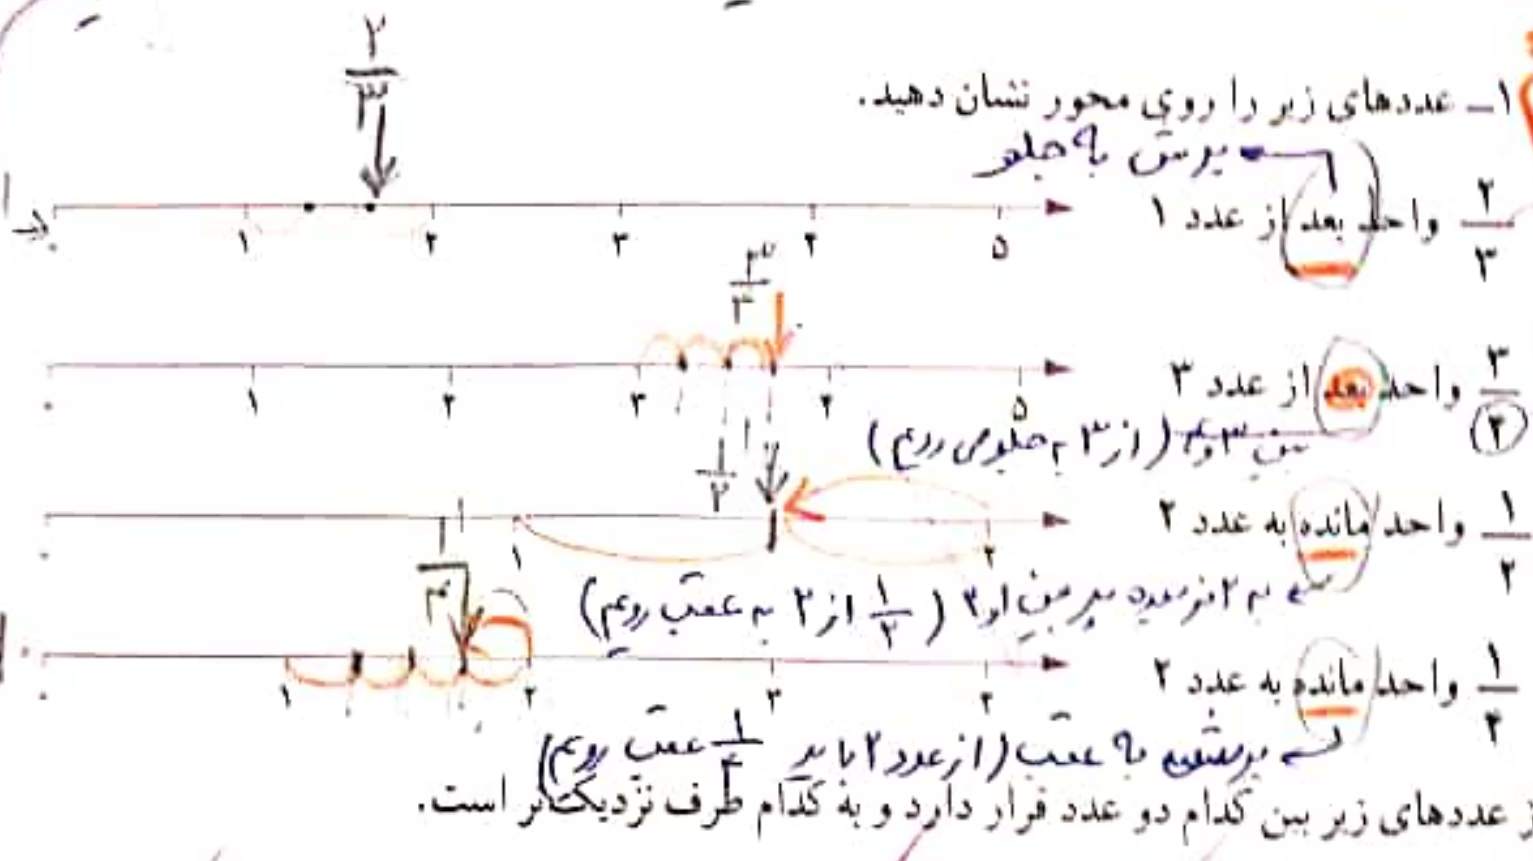 ۱- عددهای زیر را روی محور نشان دهید.
پرش به جلو
۲/۳ واحد بعد از عدد ۱
۲/۳
۱ ۲ ۳ ۴ ۵
۳/۴ واحد بعد از عدد ۳
۳/۴
۰ ۱ ۲ ۳ ۴ ۵
بین ۳ و ۴ (از ۳ به جلو می رویم)
۱/۲ واحد مانده به عدد ۲
۱/۲
۰ ۱ ۲
به ۲ نرسیده پس بین ۱و۲ (۱/۲ از ۲ به عقب رویم)
۱/۴ واحد مانده به عدد ۲
۱/۴
۰ ۱ ۲ ۳ ۴
به عقب (از عدد ۲ باید ۱/۴ عقب رویم)
از عددهای زیر بین کدام دو عدد قرار دارد و به کدام طرف نزدیک‌تر است.